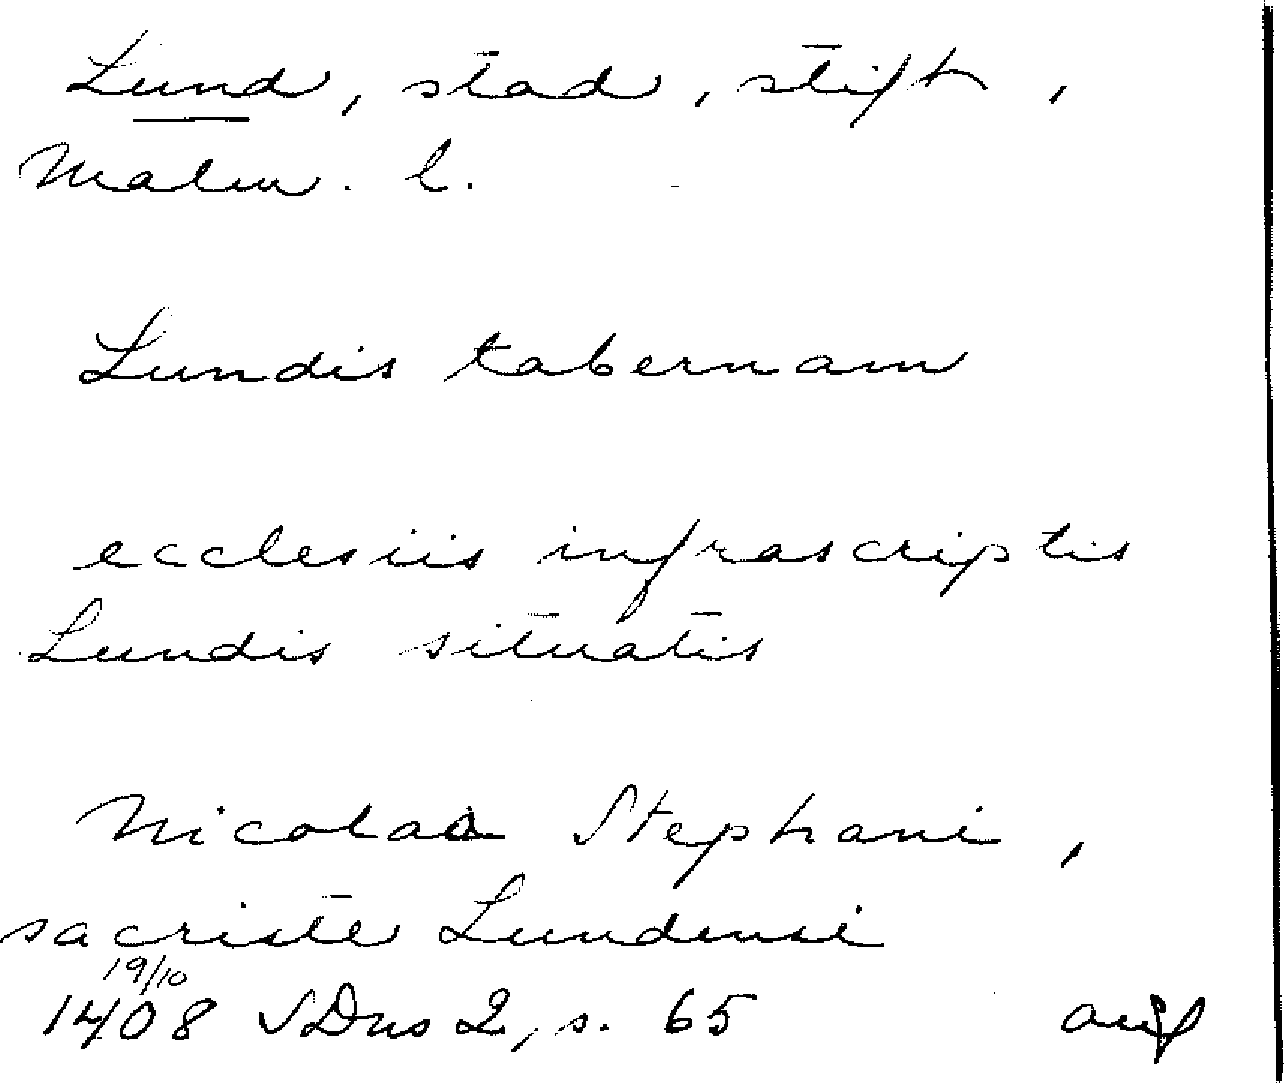 Lund, stad, stift,
Malm. l.
Lundis tabernam
ecclesiis infrascriptis
Lundis situatis
Nicolao Stephani,
sacriste Lundensi
19/10
1408 SDns 2, s. 65